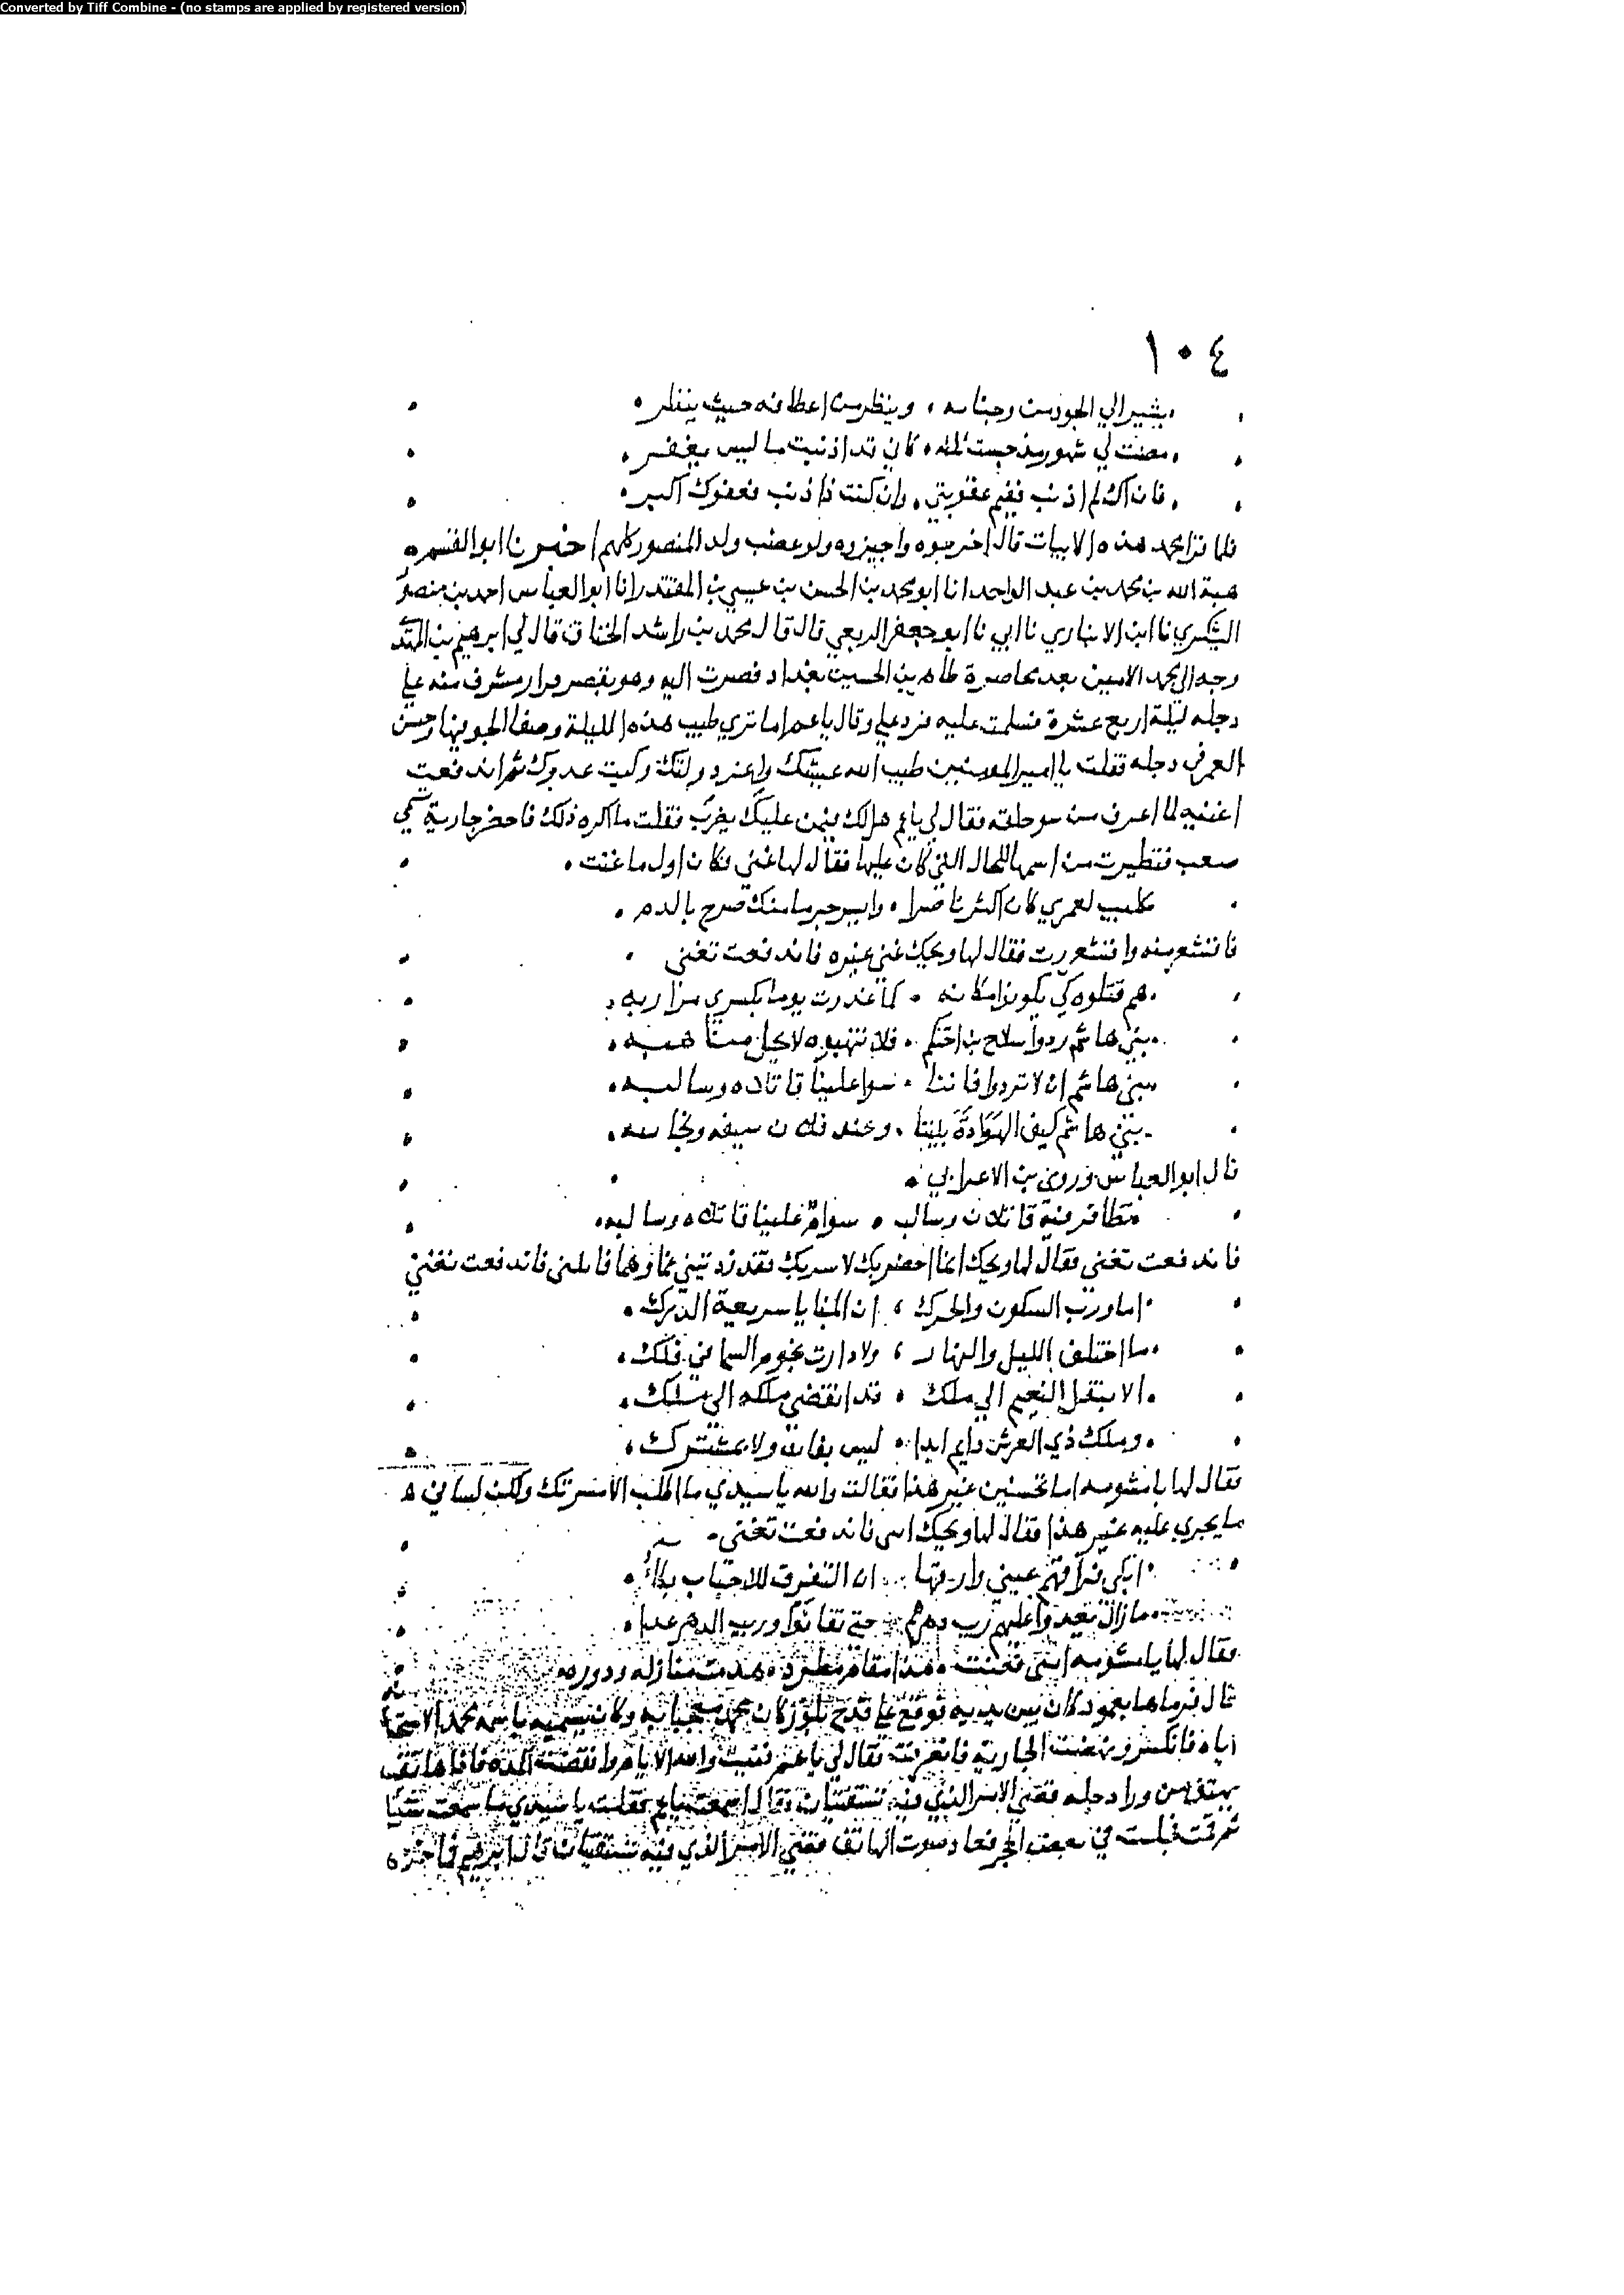 Converted by Tiff Combine - (no stamps are applied by registered version)
١٠٤
يشير الي الجود من وجناته وينظر من اعطافه حيث ينظر
مضت لي شهور مذ حبست ثلثه كاني قد اذنبت ما ليس يغفر
فان اك لم اذنب ففيم عقوبتي وان كنت ذا ذنب فعفوك اكبر
فلما قرا محمد هذه الابيات قال اخرجوه واجيزوه ولو غضب ولد المنصور كلهم اخبرنا ابو القسم
هبة الله بن محمد بن عبد الواحد انا ابو محمد بن الحسن بن عيسي بن المقتدر انا ابو العباس احمد بن منصور
اليشكري نا ابن الانباري نا ابي نا ابو جعفر الربعي قال قال محمد بن راشد الخناق قال لي ابرهيم بن المهدي
وجه الي محمد الامين بعد محاصرة طاهر بن الحسين بغداد فصرت اليه وهو بقصر قرار مشرف منه علي
دجله ليلة اربع عشرة فسلمت عليه فرد علي وقال يا عم اما تري طيب هذه الليلة وصفا الجو فيها وحسن
القمر في دجله فقلت يا امير المومنين طيب الله عيشك واعز دولتك وكبت عدوك ثم اندفعت
اغنيه لما اعرف من سو خلقه فقال لي يا عم هل لك فيمن عليك يضرب فقلت ما اكره ذلك فاحضر جارية تسمي
صعب فتطيرت من اسمها للحال التي كان عليها فقال لها غني فكان اول ما غنت
كليب لعمري كان اكثر ناصرا وايسر جرما منك ضرج بالدم
فاقشعر منه واقشعررت فقال لها ويحك غني غيره فاندفعت تغني
هم قتلوه كي يكونوا مكانه كما غدرت يوما بكسري مرازبه
بني هاشم ردوا سلاح بن اختكم فلا تنهبوه لا يحل مناهبه
بني هاشم ان لا تردوا فاننا سوا علينا قاتلاه وسالبه
بني هاشم كيف الهوادة بيننا وعند فلان سيفه ونجايبه
قال ابو العباس وروي بن الاعرابي
تظافر فيه قاتلان وسالب سواء علينا قاتلاه وسالبه
فاندفعت تغني فقال لها ويحك انما احضرتك لاسر بك فقد زدتيني غما وهما فابلغي فاندفعت تغني
اما ورب السكون والحرك ان المنايا سريعة الدرك
ما اختلف الليل والنهار ولا دارت نجوم السما في فلك
الا بنقل النعيم الي ملك قد انقضي ملكه الي ملك
وملك ذي العرش دايم ابدا ليس بفان ولا بمشترك
فقال لها يا مشومه اما تحسنين غير هذا فقالت والله يا سيدي ما اطلب الا مسرتك ولكن لساني
ما يجري عليه غير هذا فقال لها ويحك فاندفعت تغني
ابكي فراقهم عيني وارقها ان التفرق للاحباب بكاء
ما زال يعدوا عليهم ريب دهرهم حتي تفانوا وريب الدهر عداء
فقال لها يا مشومه فغنت هذا مقام مطرد هدمت منازله ودوره
قال فرماها بعمود كان بين يديه فوقع علي قدح بلور كان محمد معجبا به وكان يسميه باسمه محمد
اياه فانكسر ونهضت الجارية فانصرفت فقال لي يا عم فنيت والله الايام وانقضت المده فاذا هاتف
يهتف من ورا دجله قضي الامر الذي فيه تستفتيان فقال اسمعت يا عم فقلت يا سيدي ما سمعت شيا
ثم قمت فجلست في بعض الحجر فعاد صوت الهاتف قضي الامر الذي فيه تستفتيان قال ابرهيم